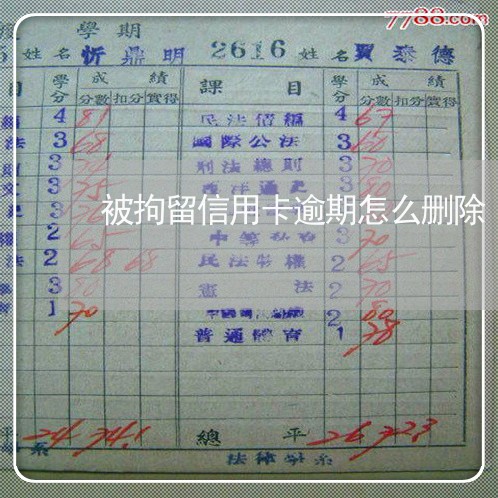 7788.com
學期
姓名 忻鼎明 2616 姓名 賈泰德
目 學分 成績 課目 學分 成績
分數 扣分 實得 分數 扣分 實得
4 81 民法債編 4 67
法 3 68 國際公法 3 60
3 刑法總則 3 70
3 75 西洋通史 3 80
被拘留信用卡逾期怎么删除
2 65 3 70
法 2 68 68 民法物權 2 65
3 80 憲法 2 70
1 70 2 80
普通體育 1 78
平 24 74.1 總平 26 72.3
系 法律學系